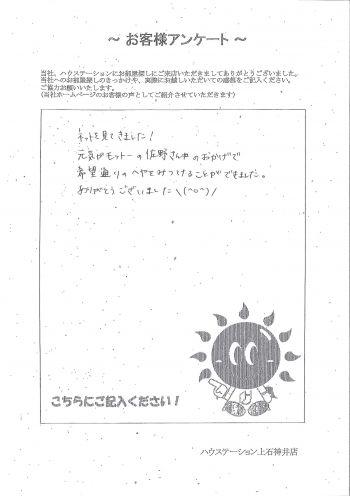 ～ お客様アンケート ～
当社、ハウステーションにお部屋探しにご来店いただきましてありがとうございました。
当社へのお部屋探しのきっかけや、実際にお越しいただいての感想をご記入ください。
ご協力お願いいたします。
(当社ホームページのお客様の声としてご紹介させていただきます)
ネットを見てきました！
元気がモットーの佐野さんのおかげで
希望通りのヘヤをみつけることができました。
ありがとうございました\(^o^)/
こちらにご記入ください！
ハウステーション上石神井店